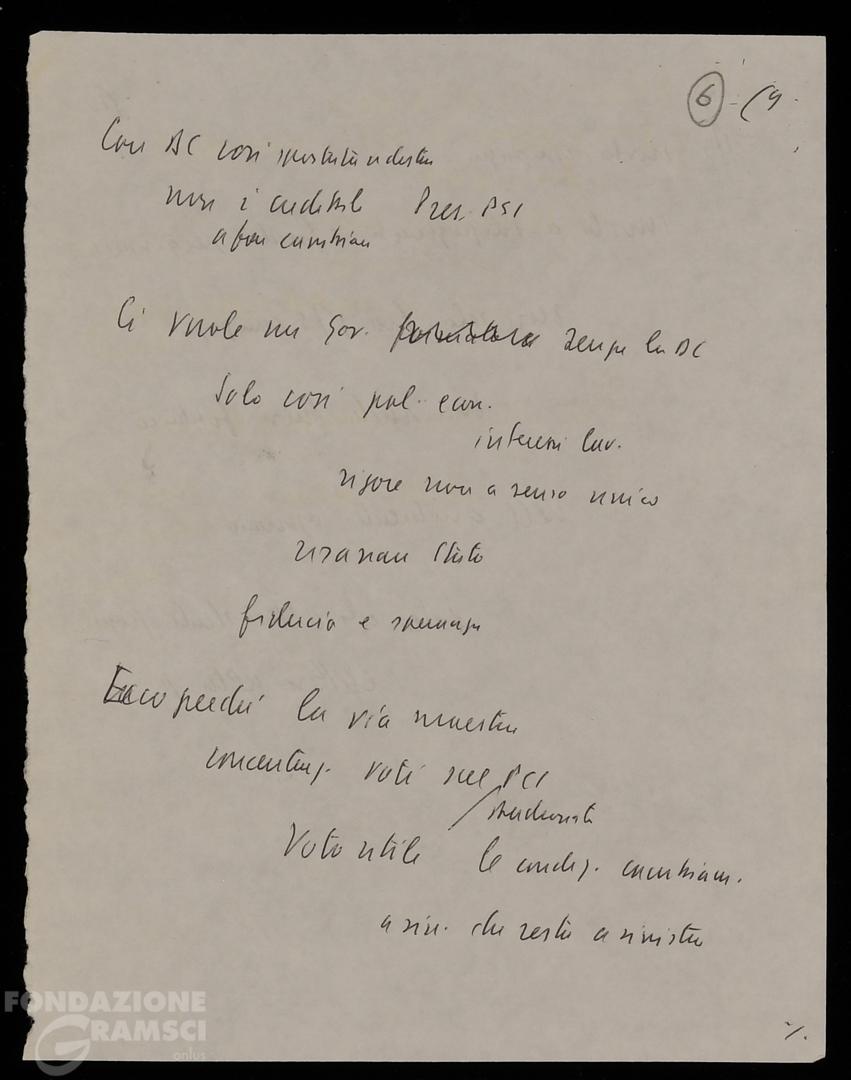 6 - (9.
Con DC così spostata a destra
non è credibile Pres. PSI
a fare cambiam
Ci vuole un Gov. senza la DC
Solo così pol. econ.
interessi lav.
rigore non a senso unico
risanam Stato
fiducia e speranza
Ecco perché la via maestra
concentraz. voti sul PCI
Voto utile le condiz. cambiam.
a sin. che resta a sinistra
./.
FONDAZIONE
GRAMSCI
onlus